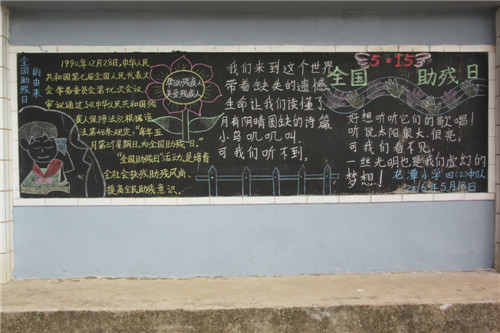 全国助残日
的由来
1990年12月28日,中华人民
共和国第七届全国人民代表大
会常务委员会第十七次会议
审议通过了《中华人民共和国残
疾人保障法》,根据该
法第48条规定:“每年五
月第三个星期日,为全国助残日”。
“全国助残日”活动,是培育
全社会扶残助残风尚、
提高全民助残意识。
帮助残疾
关爱残疾人
我们来到这个世界
带着缺失的遗憾
生命让我们读懂了
月有阴晴圆缺的诗篇
小鸟叽叽叫,
可我们听不到,
5·15
全国 助残日
好想听听它们的歌唱!
听说太阳很大、很亮,
可我们看不见,
一丝光明也是我们虚幻的
梦想!
龙潭小学四(2)中队
2016年5月13日